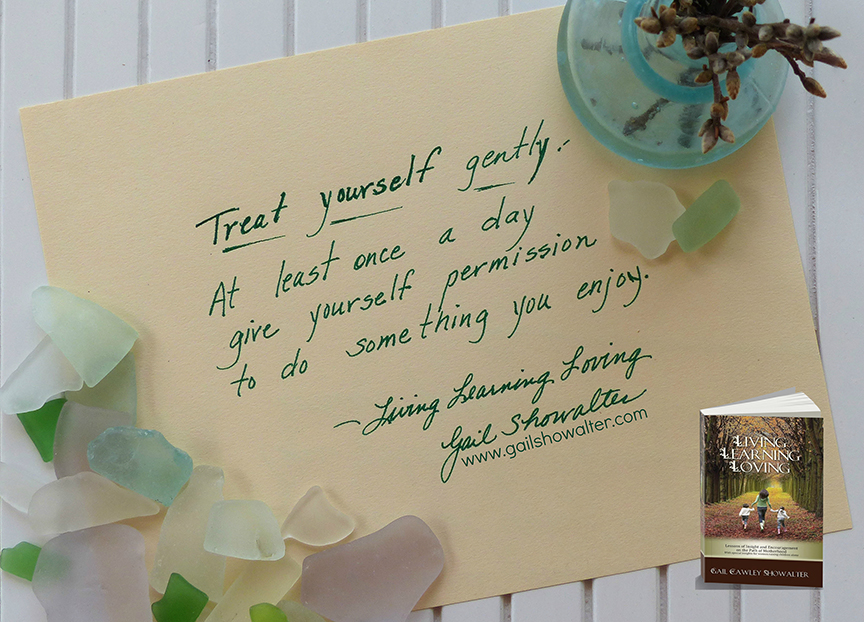 Treat yourself gently.
At least once a day
give yourself permission
to do something you enjoy.
~ Living Learning Loving
Gail Showalter
www.gailshowalter.com
LIVING
LEARNING
LOVING
Lessons of Insight and Encouragement
on the Path of Motherhood
GAIL CAWLEY SHOWALTER